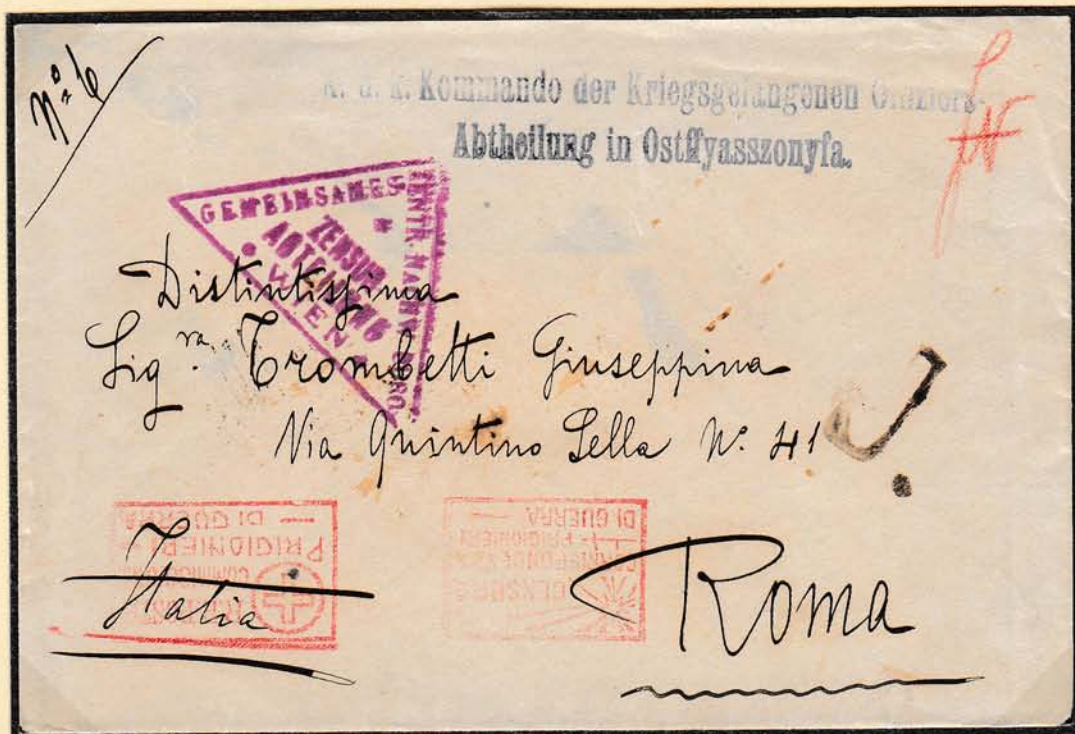 Nº 6
K. u. k. Kommando der Kriegsgefangenen Offiziers-
Abtheilung in Ostffyasszonyfa.
GEMEINSAMES ZENTR. NACHW. BURO
ZENSUR
ABTEILUNG
WIEN
Distintissima
Sigra. Trombetti Giuseppina
Via Quintino Sella Nº. 41
Italia
Roma
COMMISSIONE
PRIGIONIERI
DI GUERRA
CENSURA
PRIGIONIERI
DI GUERRA